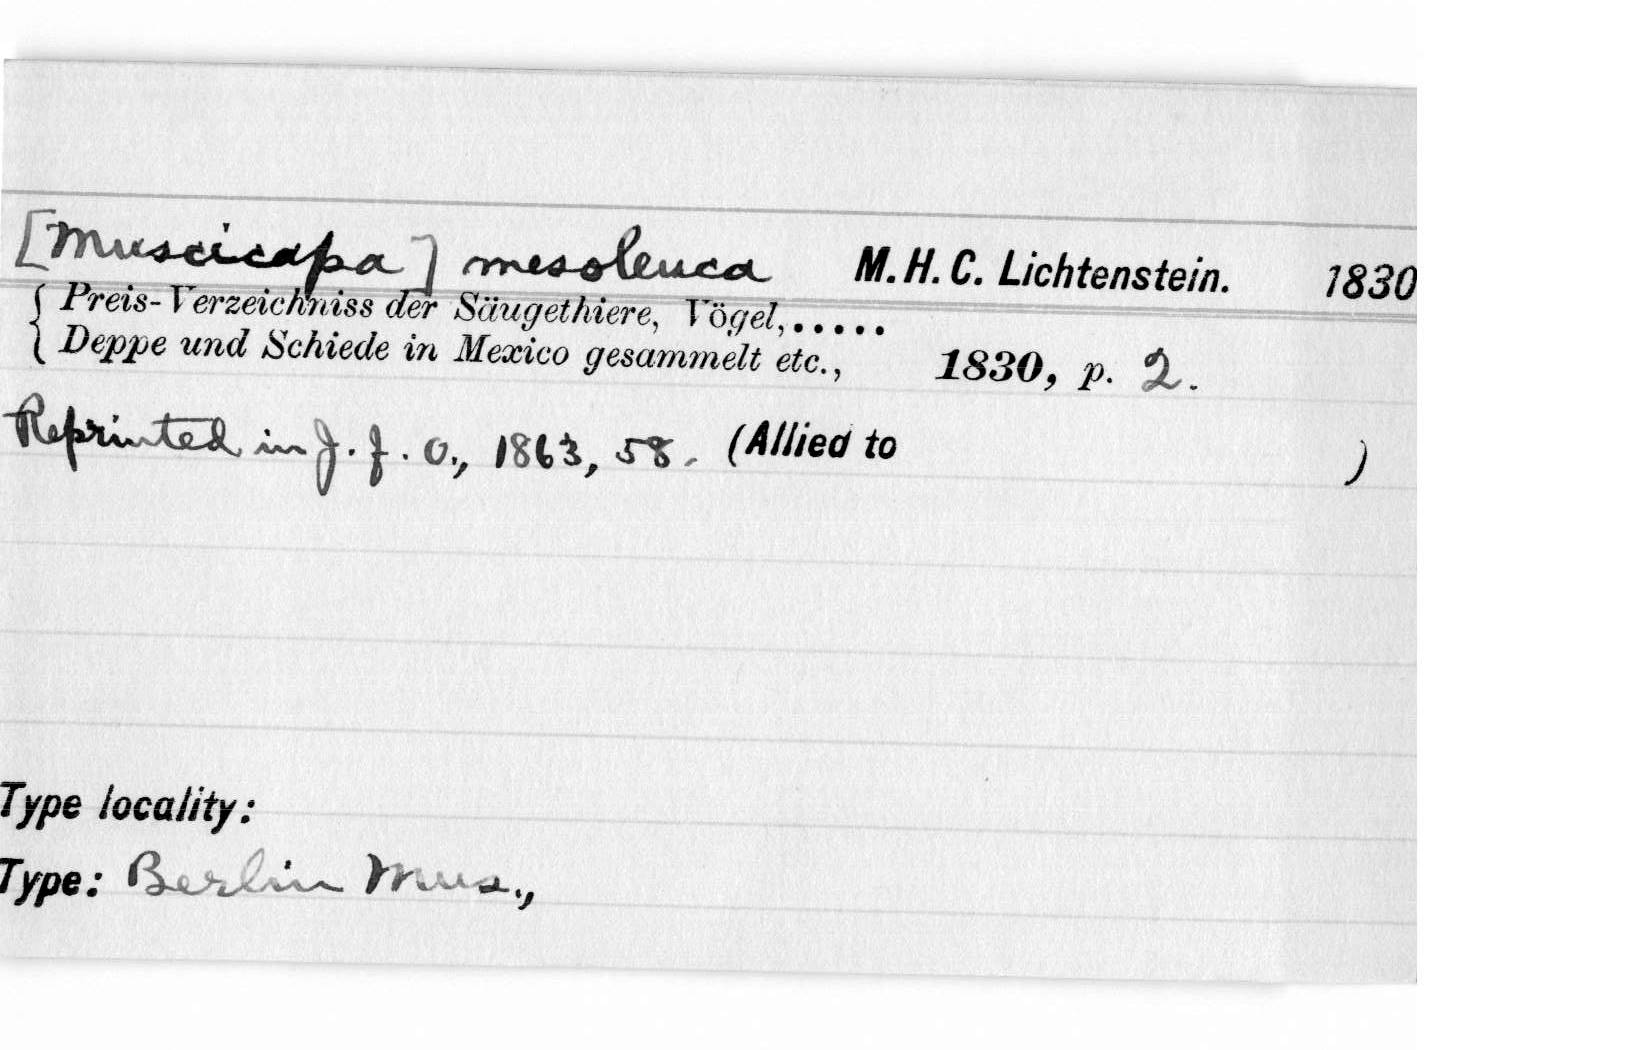 [Muscicapa] mesoleuca M. H. C. Lichtenstein. 1830
{ Preis-Verzeichniss der Säugethiere, Vögel,.....
{ Deppe und Schiede in Mexico gesammelt etc., 1830, p. 2.
Reprinted in J. f. O., 1863, 58. (Allied to )
Type locality:
Type: Berlin Mus.,